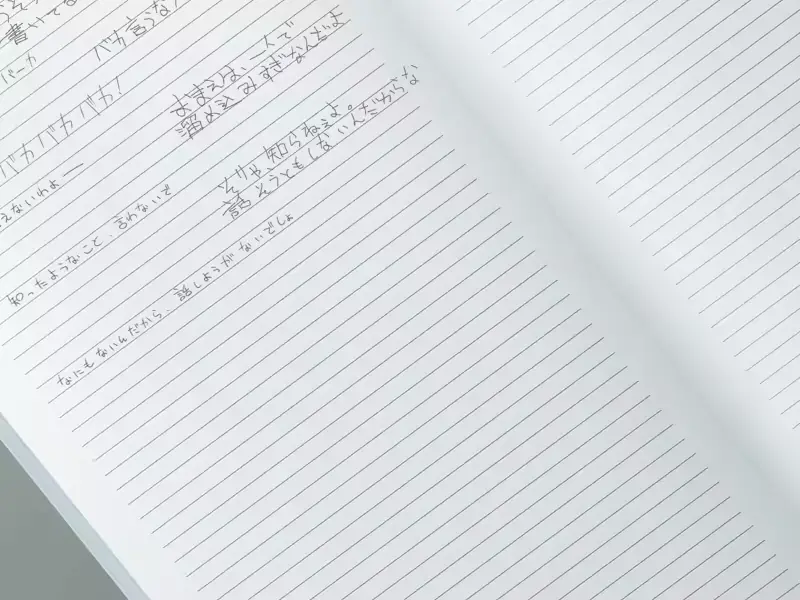 書いてな
バカ言うな
バーカ
バカバカバカ!
おまえは、一人で
溜めこみすぎなんだよ
えないわよー
そりゃ知らねえよ。
話そうともしないんだからな
知ったようなこと、言わないで
なにもないんだから、話しようがないでしょ